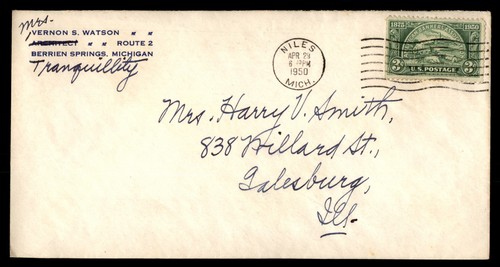 Mrs.
VERNON S. WATSON " "
ARCHITECT " " ROUTE 2
BERRIEN SPRINGS, MICHIGAN
Tranquillity
NILES
APR 29
PM
1950
MICH.
1875 1950
3¢ U.S. POSTAGE 3¢
Mrs. Harry V. Smith,
838 Willard St.,
Galesburg,
Ill.